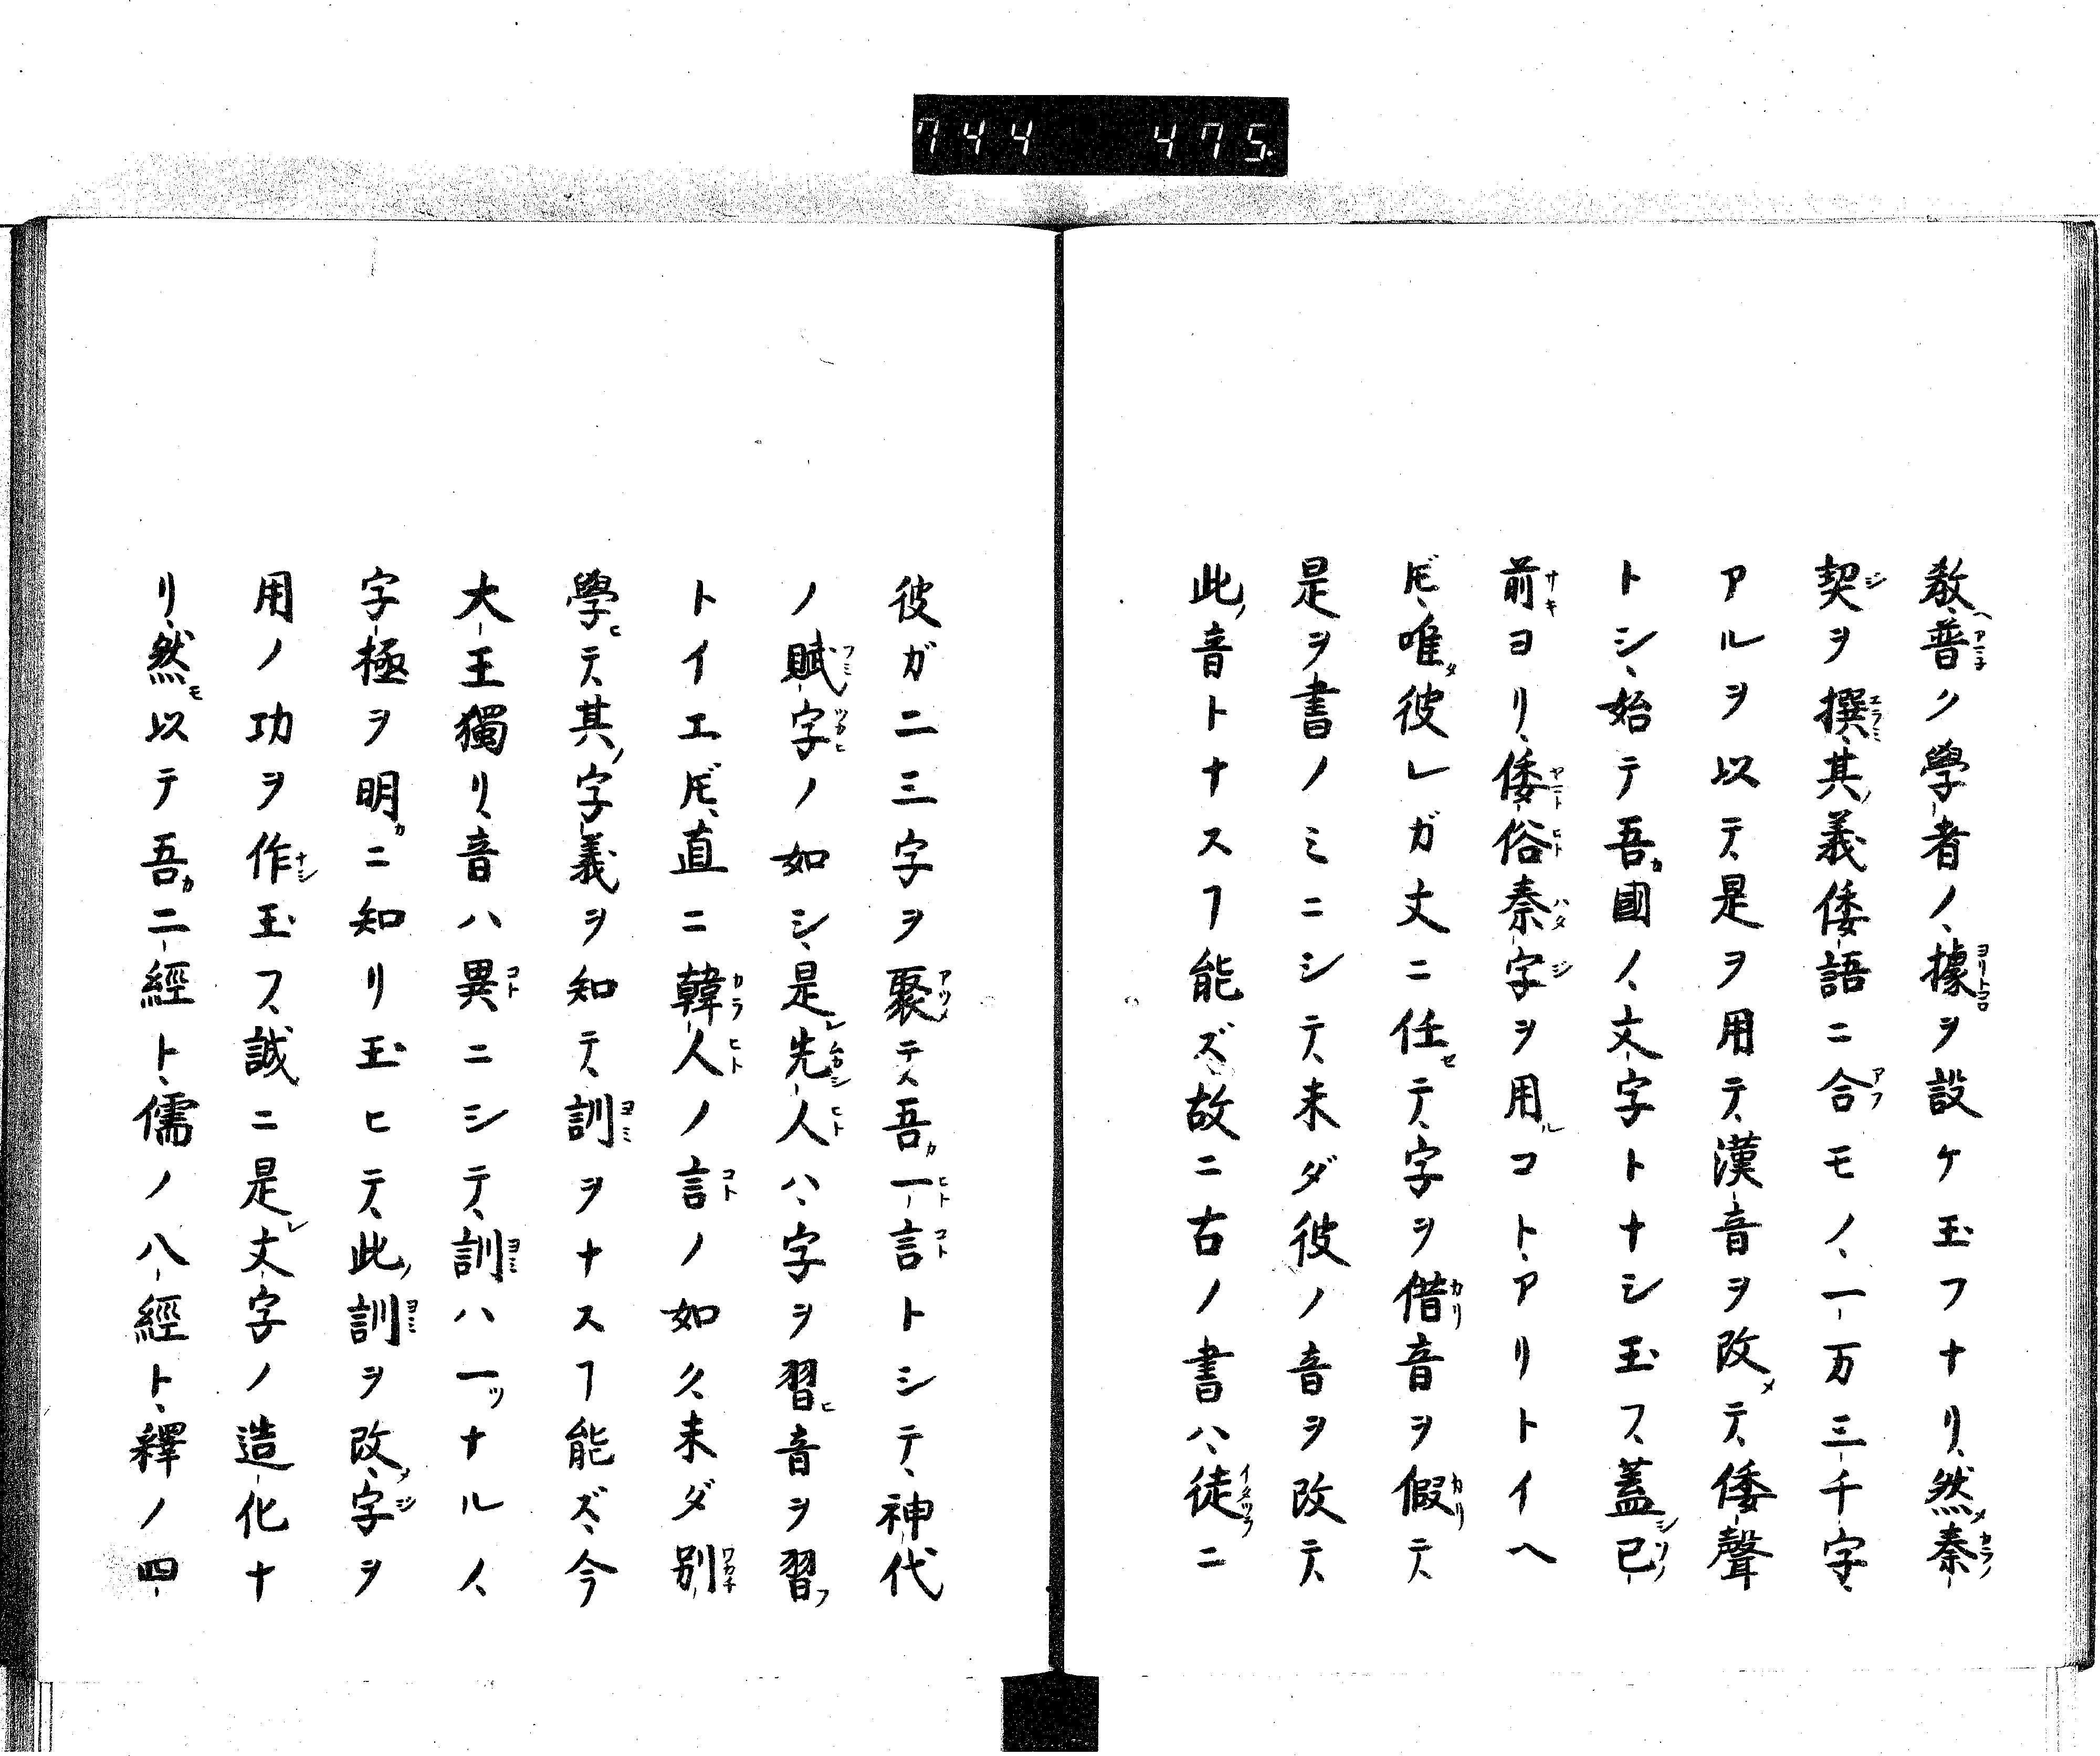 744 475.
教、普ク學者ノ、據ヲ設ケ玉フナリ、然秦
契ヲ撰、其義倭語ニ合モノ、一万三千字、
アルヲ以テ、是ヲ用テ、漢音ヲ改テ、倭聲
トシ、始テ吾國ノ、文字トナシ玉フ、蓋已
前ヨリ、倭俗秦字ヲ用ルコト、アリトイヘ
𪜈、唯彼レガ丈ニ任テ、字ヲ借音ヲ假テ、
是ヲ書ノミニシテ、未ダ彼ノ音ヲ改テ、
此音トナスフ能ズ、故ニ古ノ書ハ、徒ニ
彼ガ二三字ヲ聚テ、吾一言トシテ、神代
ノ賦字ノ如シ、是先人ハ、字ヲ習音ヲ習
トイエ𪜈、直ニ韓人ノ言ノ如ク、未ダ別
學テ、其字義ヲ知テ、訓ヲナスフ能ズ、今
大王獨リ、音ハ異ニシテ、訓ハ一ツナルノ、
字極ヲ明ニ知リ玉ヒテ、此訓ヲ改、字ヲ
用ノ功ヲ作玉フ、誠ニ是文字ノ造化ナ
リ、然以テ吾二經ト、儒ノ八經ト、釋ノ四